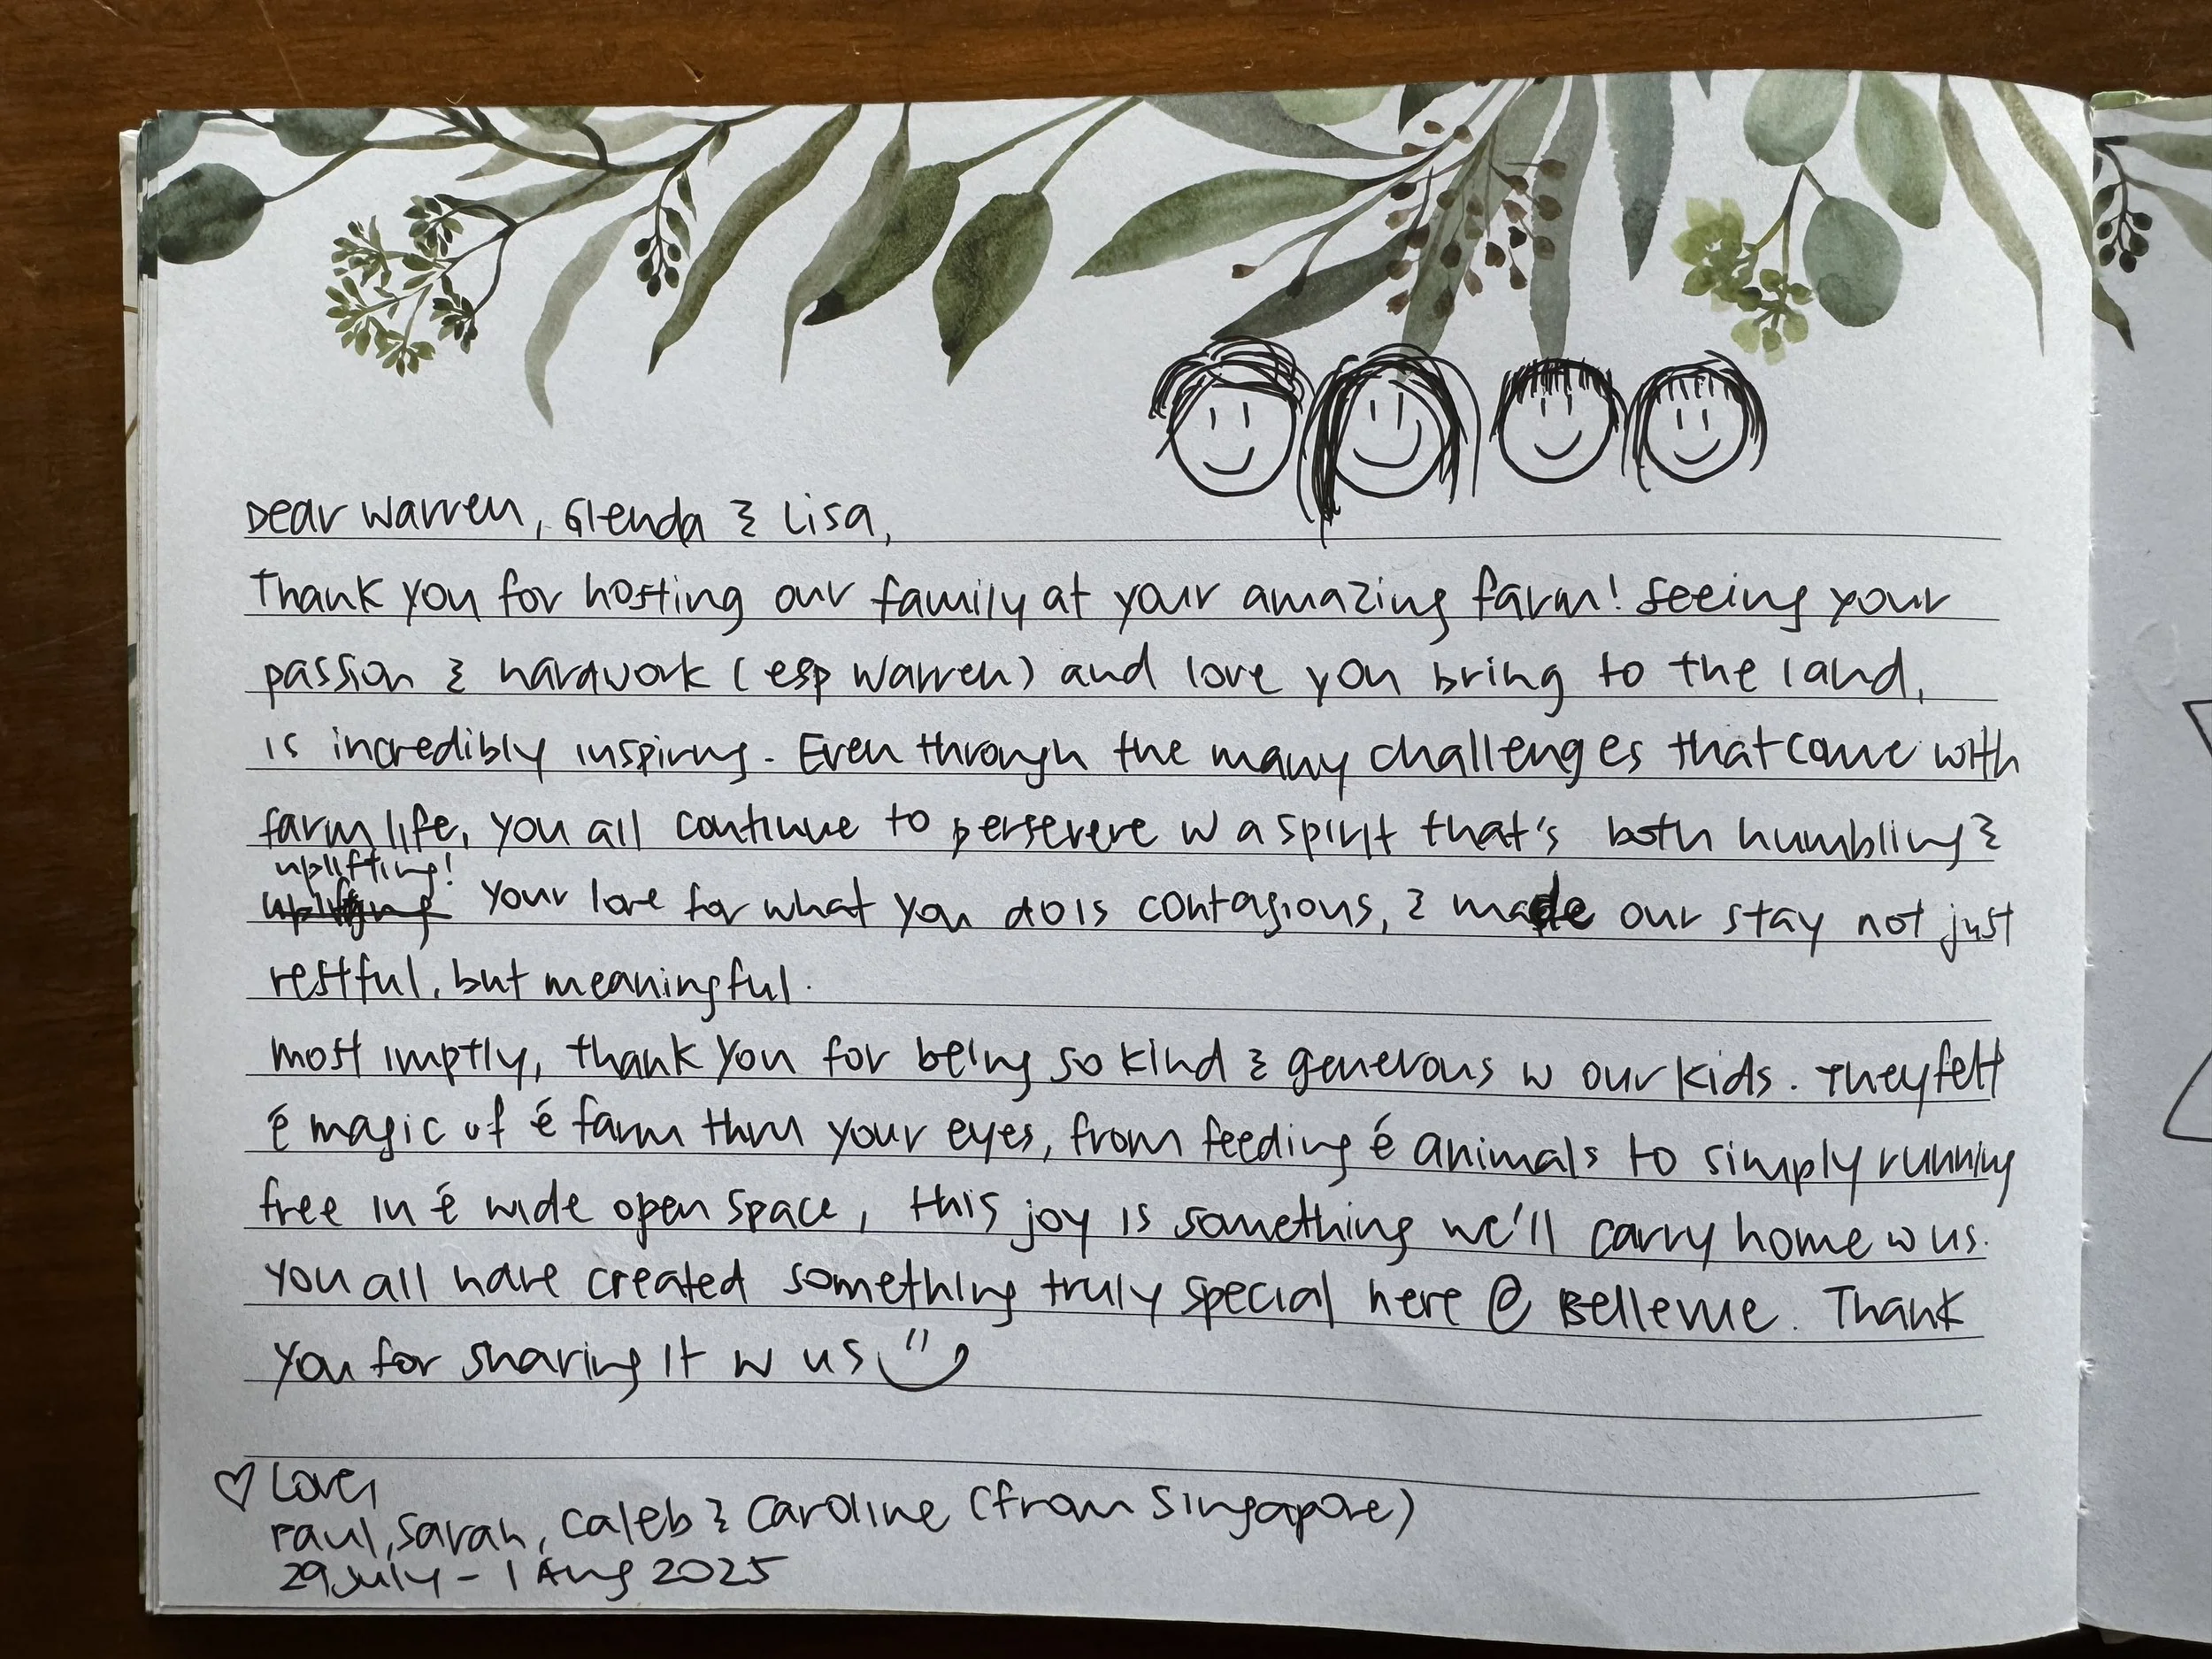 Dear Warren, Glenda & Lisa,
Thank you for hosting our family at your amazing farm! Seeing your
passion & hardwork (esp Warren) and love you bring to the land,
is incredibly inspiring. Even through the many challenges that come with
farm life, you all continue to persevere w a spirit that's both humbling &
uplifting!
Your love for what you do is contagious, & made our stay not just
restful, but meaningful.
Most imptly, thank you for being so kind & generous w our kids. They felt
é magic of é farm thru your eyes, from feeding é animals to simply running
free in é wide open space, this joy is something we'll carry home w us.
You all have created something truly special here @ Bellevue. Thank
you for sharing it w us
Love,
Paul, Sarah, Caleb & Caroline (from Singapore)
29 July - 1 Aug 2025